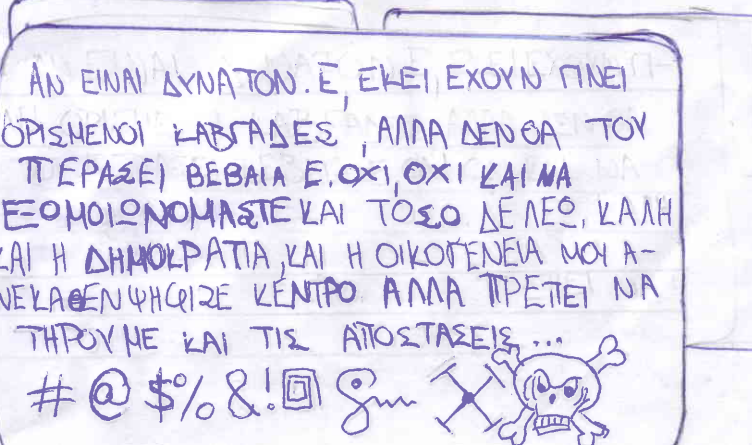 ΑΝ ΕΙΝΑΙ ΔΥΝΑΤΟΝ. Ε, ΕΚΕΙ, ΕΧΟΥΝ ΓΙΝΕΙ
ΟΡΙΣΜΕΝΟΙ ΚΑΒΓΑΔΕΣ, ΑΛΛΑ ΔΕΝ ΘΑ ΤΟΥ
ΠΕΡΑΣΕΙ ΒΕΒΑΙΑ Ε. ΟΧΙ, ΟΧΙ ΚΑΙ ΝΑ
ΕΞΟΜΟΙΩΝΟΜΑΣΤΕ ΚΑΙ ΤΟΣΟ ΔΕ ΛΕΩ, ΚΑΛΗ
ΚΑΙ Η ΔΗΜΟΚΡΑΤΙΑ, ΚΑΙ Η ΟΙΚΟΓΕΝΕΙΑ ΜΟΥ Α-
ΝΕΚΑΘΕΝ ΨΗΦΙΖΕ ΚΕΝΤΡΟ ΑΛΛΑ ΠΡΕΠΕΙ ΝΑ
ΤΗΡΟΥΜΕ ΚΑΙ ΤΙΣ ΑΠΟΣΤΑΣΕΙΣ...
#@$%&!